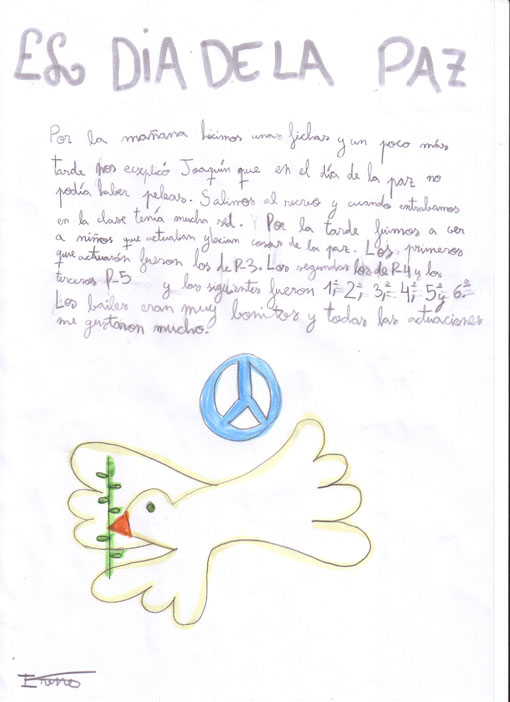 EL DIA DE LA PAZ
Por la mañana hicimos unas fichas y un poco más
tarde nos explicó Joaquín que en el día de la paz no
podía haber peleas. Salimos al recreo y cuando entrabamos
en la clase tenía mucha sed. Por la tarde fuimos a ver
a niños que actuaban y hacian cosas de la paz. Los primeros
que actuarón fueron los de P-3. Los segundos los de P-4 y los
terceros P-5 y los siguientes fueron 1º, 2º, 3º, 4º, 5º y 6º.
Los bailes eran muy bonitos y todas las actuaciones
me gustaron mucho.